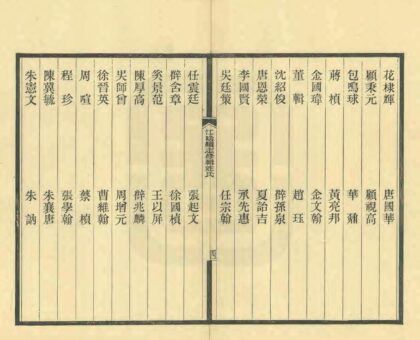 花棣輝　唐國華
顧秉元　顧視高
包鳴球　華鼐
蔣楨　黃亮邦
金國璋　金文翰
董輯　趙玨
沈紹俊　薛孫泉
唐恩榮　夏詒吉
李國賢　承先惠
吳廷策　任宗翰
江陰續志修輯姓氏
任震廷　張起文
薛含章　徐國楨
奚景范　王以屏
陳厚高　薛兆麟
吳師曾　周增元
徐晉英　曹維翰
周喧　蔡楨
程珍　張學翰
陳冀毓　朱襄唐
朱憲文　朱訥